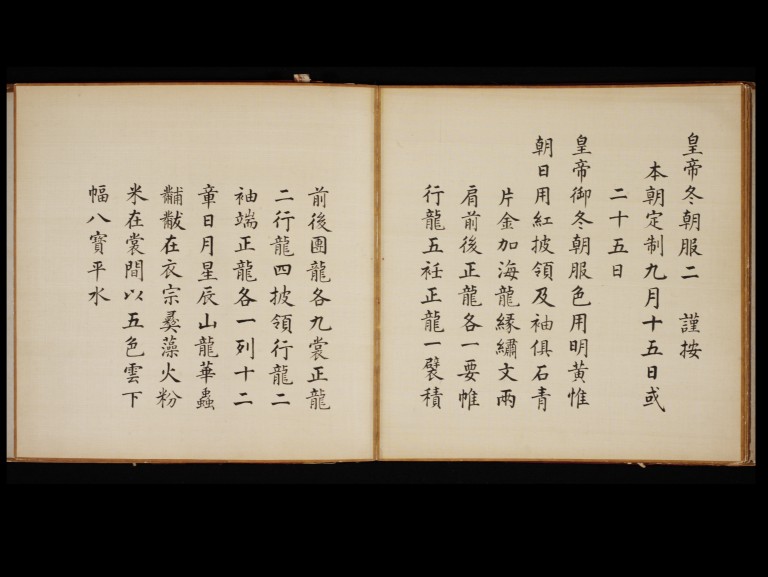 皇帝冬朝服二　謹按
本朝定制九月十五日或
二十五日
皇帝御冬朝服色用明黃惟
朝日用紅披領及袖俱石青
片金加海龍緣繡文兩
肩前後正龍各一要帷
行龍五衽正龍一襞積
前後團龍各九裳正龍
二行龍四披領行龍二
袖端正龍各一列十二
章日月星辰山龍華蟲
黼黻在衣宗彝藻火粉
米在裳間以五色雲下
幅八寶平水